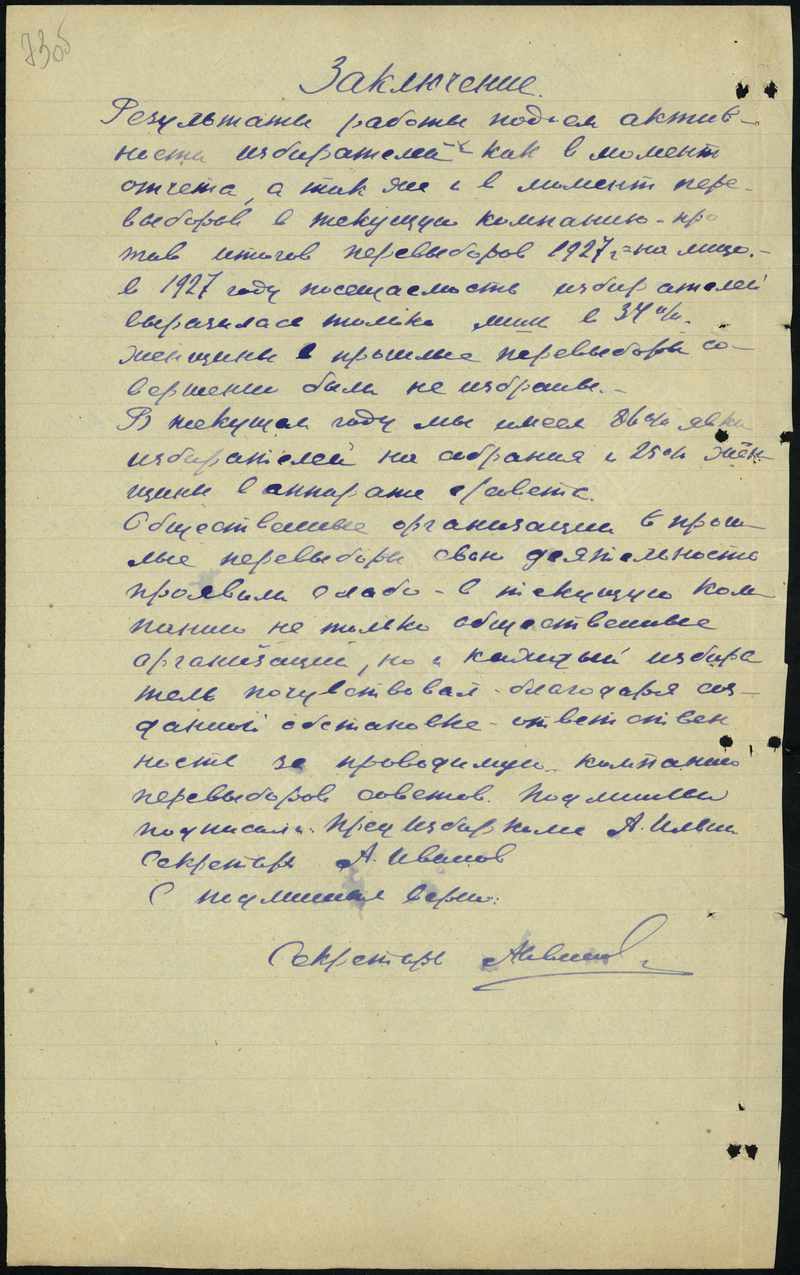 73об
Заключение.
Результаты работы подъем актив-
ности избирателей как в момент
отчета, а так же и в момент пере-
выборов в текущую компанию - про
тив итогов перевыборов 1927 г = на лицо. -
в 1927 году посещаемость избирателей
выразилась только лиш в 34%.
женщины в прошлые перевыборы со-
вершенно были не избраны. -
В текущем году мы имеем 86% явки
избирателей на собрания и 25% жен
щин в аппарате с/совета.
Общественные организации в прош-
лые перевыборы свою деятельность
проявили слабо - в текущую ком
панию не только общественные
организации, но и каждый избира
тель почувствовал - благодаря соз-
данной обстановке - ответствен
ность за проводимую компанию
перевыборов советов. Подлинный
подписали: Пред избиркома А. Ильин
Секретарь А. Иванов
С подлинным верно:
Секретарь АИванов